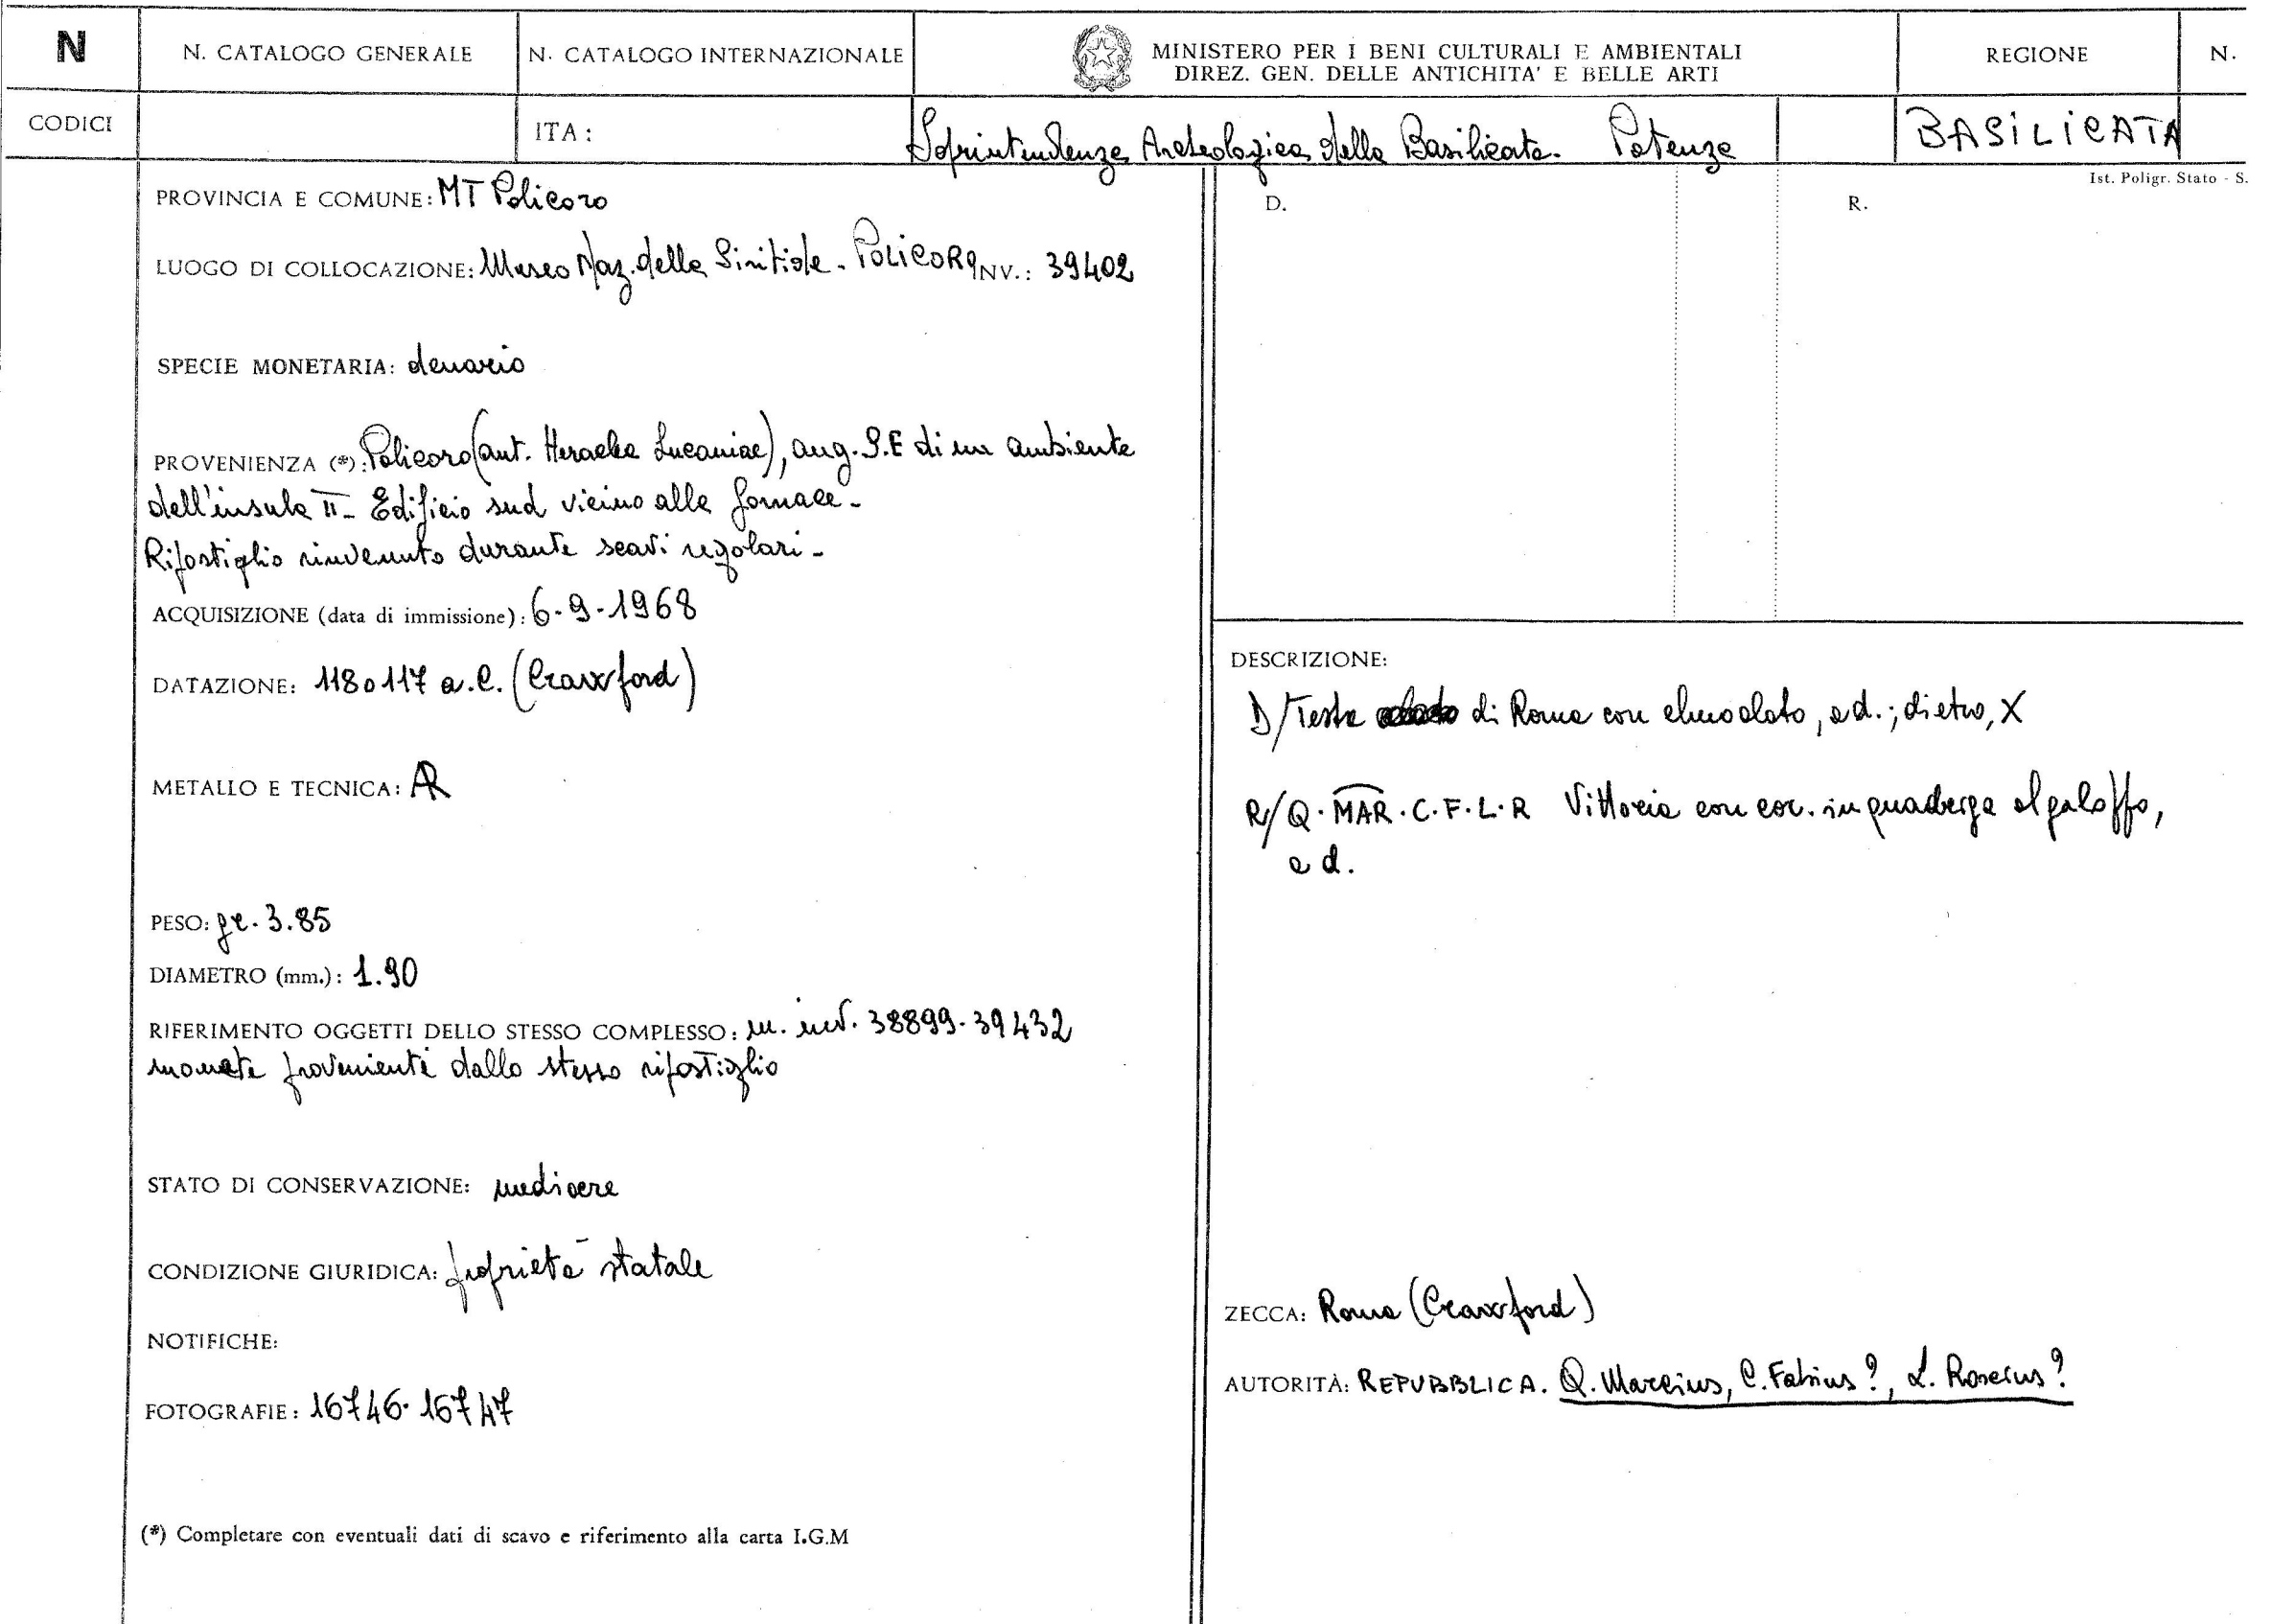 N
N. CATALOGO GENERALE
N. CATALOGO INTERNAZIONALE
MINISTERO PER I BENI CULTURALI E AMBIENTALI
DIREZ. GEN. DELLE ANTICHITA' E BELLE ARTI
REGIONE
N.
CODICI
ITA:
Soprintendenza Archeologica della Basilicata. Potenza
BASILICATA
Ist. Poligr. Stato - S.
PROVINCIA E COMUNE: MT Policoro
LUOGO DI COLLOCAZIONE: Museo Naz. della Siritide - POLICORO INV.: 39402
SPECIE MONETARIA: denario
PROVENIENZA (*): Policoro (ant. Heraclea Lucaniae), ang. S.E di un ambiente
dell'insula II - Edificio sud vicino alla fornace -
Ripostiglio rinvenuto durante scavi regolari -
ACQUISIZIONE (data di immissione): 6-9-1968
DATAZIONE: 118 o 117 a.C. (Crawford)
METALLO E TECNICA: AR
PESO: gr. 3.85
DIAMETRO (mm.): 1.90
RIFERIMENTO OGGETTI DELLO STESSO COMPLESSO: n. inv. 38899-39432
monete provenienti dallo stesso ripostiglio
STATO DI CONSERVAZIONE: mediocre
CONDIZIONE GIURIDICA: proprietà statale
NOTIFICHE:
FOTOGRAFIE: 16746-16747
(*) Completare con eventuali dati di scavo e riferimento alla carta I.G.M
D.
R.
DESCRIZIONE:
D/ Testa di Roma con elmo alato, a d.; dietro, X
R/ Q·MAR·C·F·L·R Vittoria con cor. in quadriga al galoppo,
a d.
ZECCA: Roma (Crawford)
AUTORITÀ: REPUBBLICA. Q. Marcius, C. Fabius?, L. Roscius?